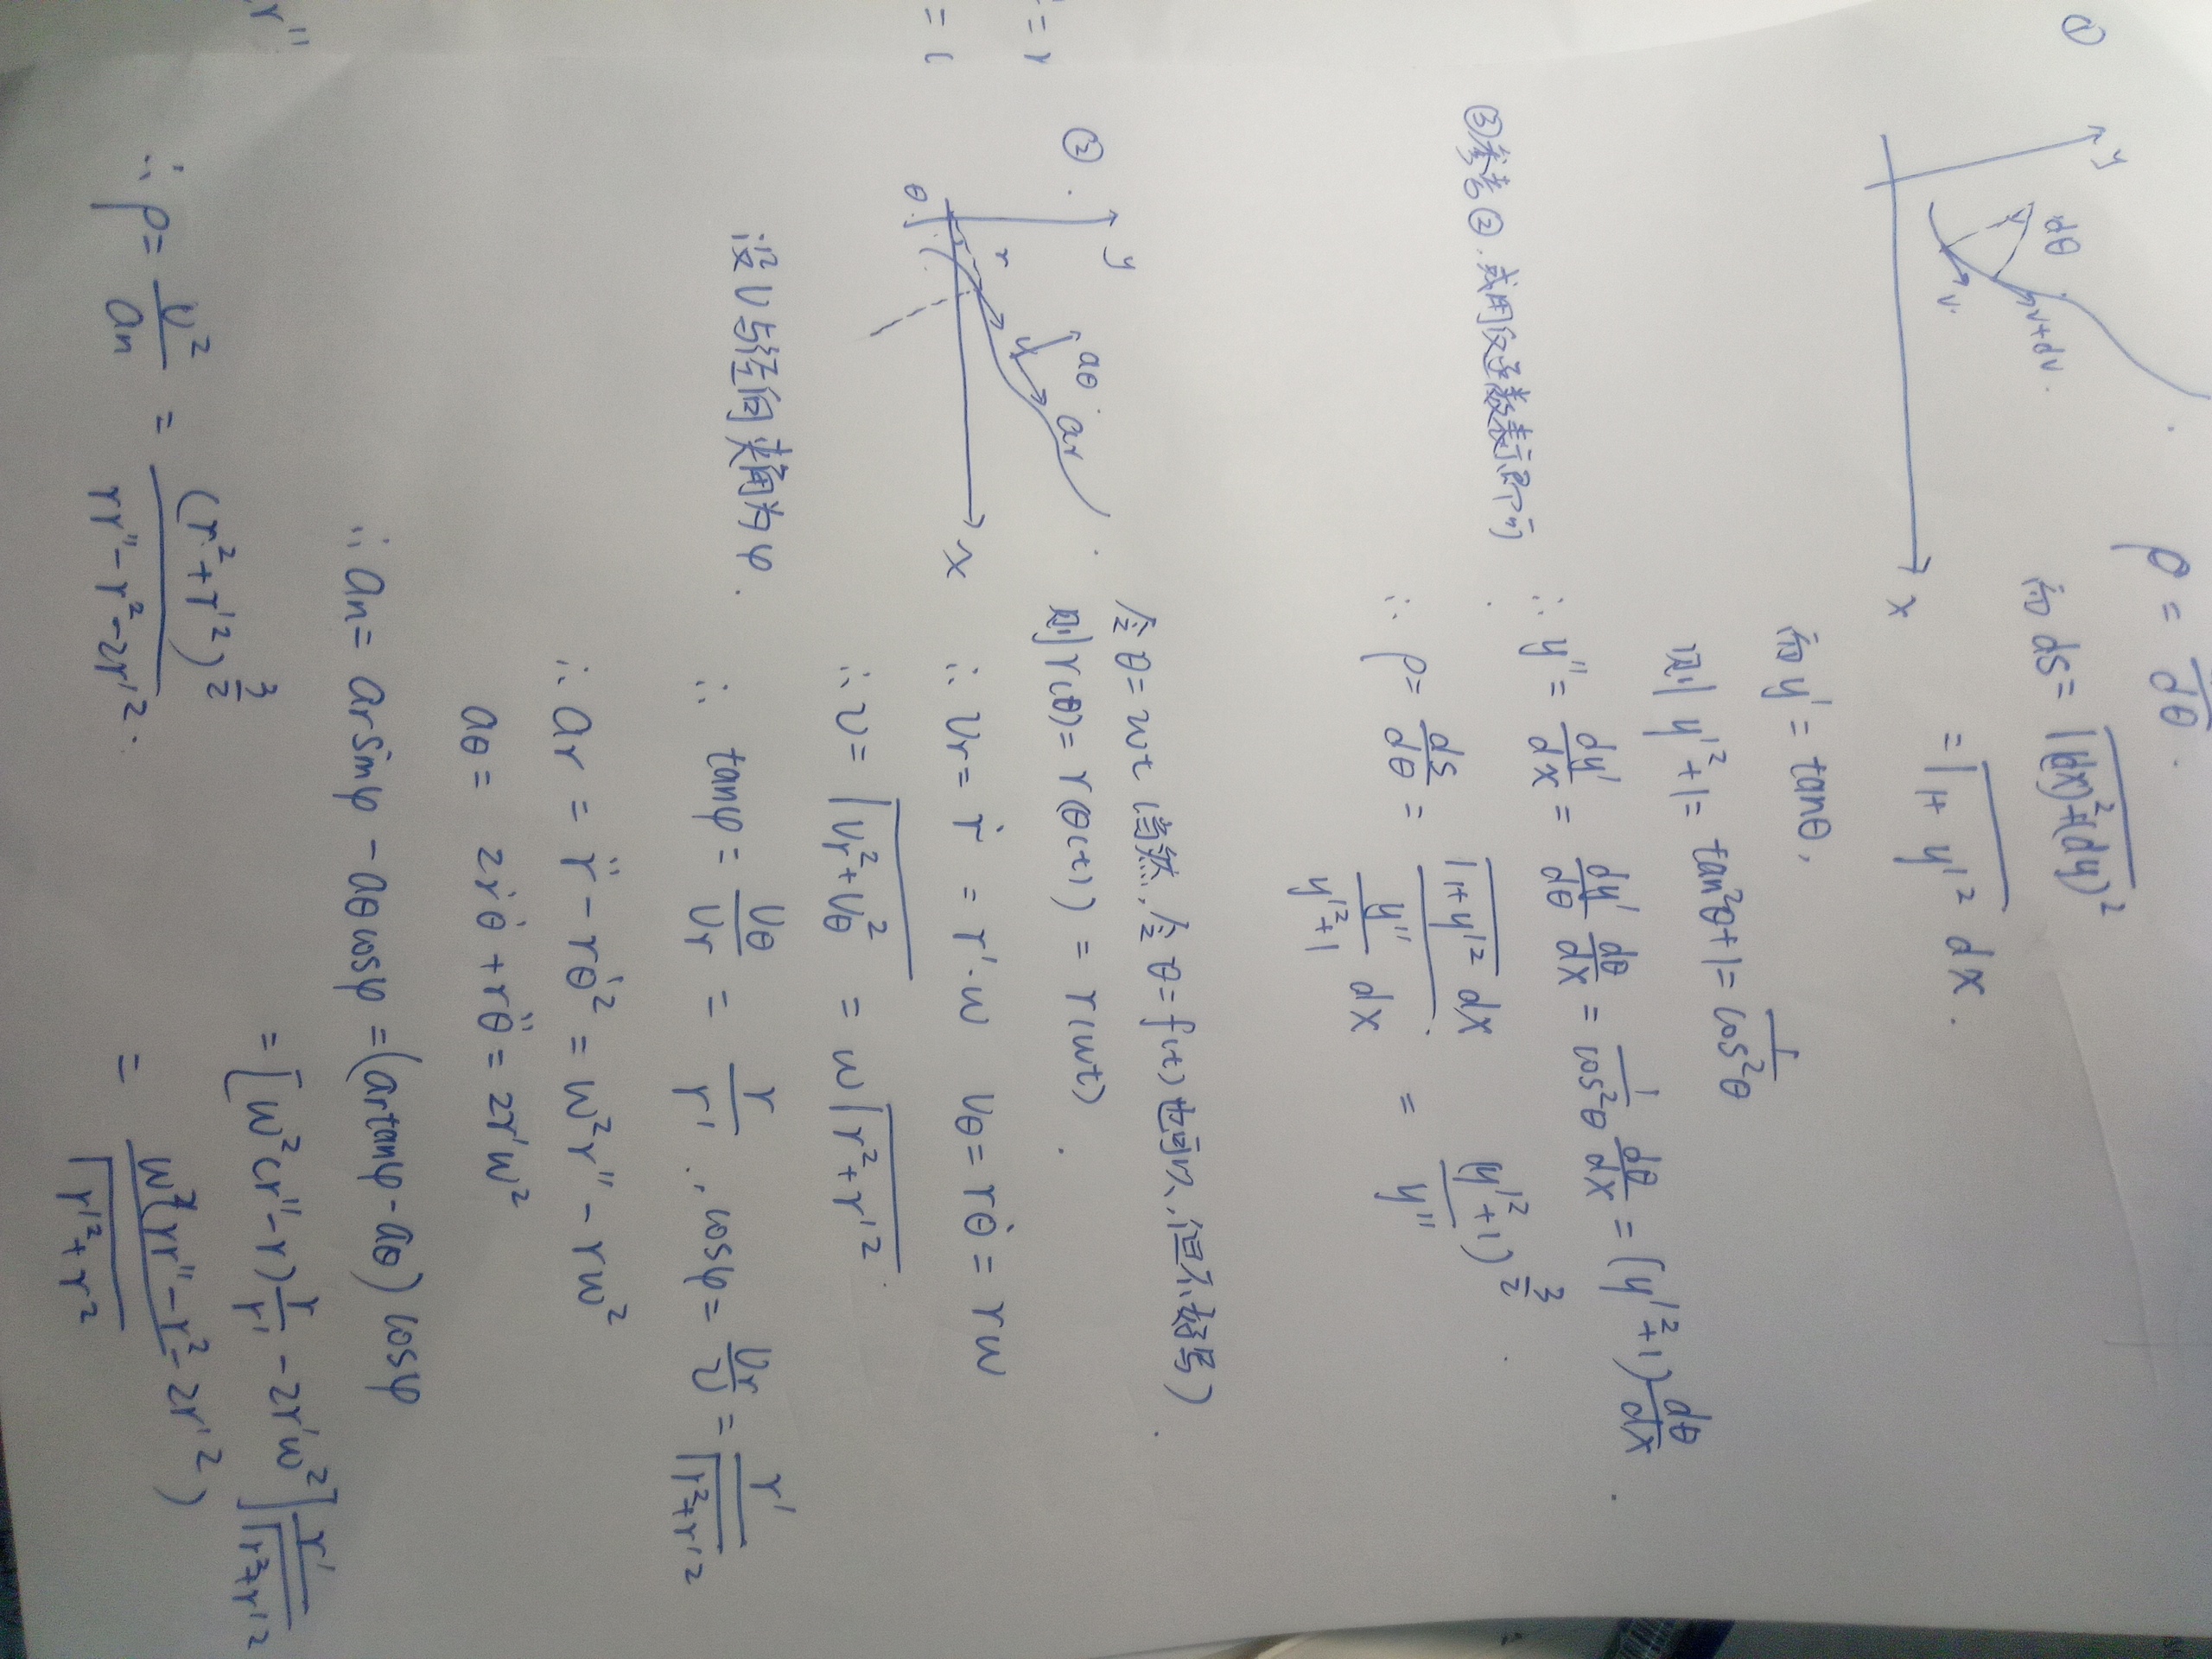 ①
y
dθ
v
v+dv
x
ρ = dθ
而 ds = √(dx)²+(dy)²
= √1+y'² dx.
而 y' = tanθ,
则 y'²+1 = tan²θ+1 = 1/cos²θ
∴ y'' = dy'/dx = dy'/dθ dθ/dx = 1/cos²θ dθ/dx = (y'²+1) dθ/dx
∴ ρ = ds/dθ = √1+y'² dx / y''/y'²+1 dx = (y'²+1)^3/2 / y''
③参考②.或用仅参数表示即可
②
y
r
v
aθ
ar
x
θ
令 θ=wt (当然,令 θ=f(t)也可以,但不好写)
则 r(θ) = r(θ(t)) = r(wt)
∴ vr = ṙ = r'·w vθ = rθ̇ = rw
∴ v = √vr²+vθ² = w√r²+r'²
设 v 与径向夹角为φ.
∴ tanφ = vθ/vr = r/r' , cosφ = vr/v = r'/√r²+r'²
∴ ar = r̈ - rθ̇² = w²r'' - rw²
aθ = 2ṙθ̇ + rθ̈ = 2r'w²
∴ an = ar sinφ - aθ cosφ = (ar tanφ - aθ) cosφ
= [w²(r''-r) r/r' - 2r'w²] r'/√r²+r'²
= w²(rr''-r²-2r'²) / √r'²+r²
∴ ρ = v²/an = (r²+r'²)^3/2 / rr''-r²-2r'².
= r
=
r''